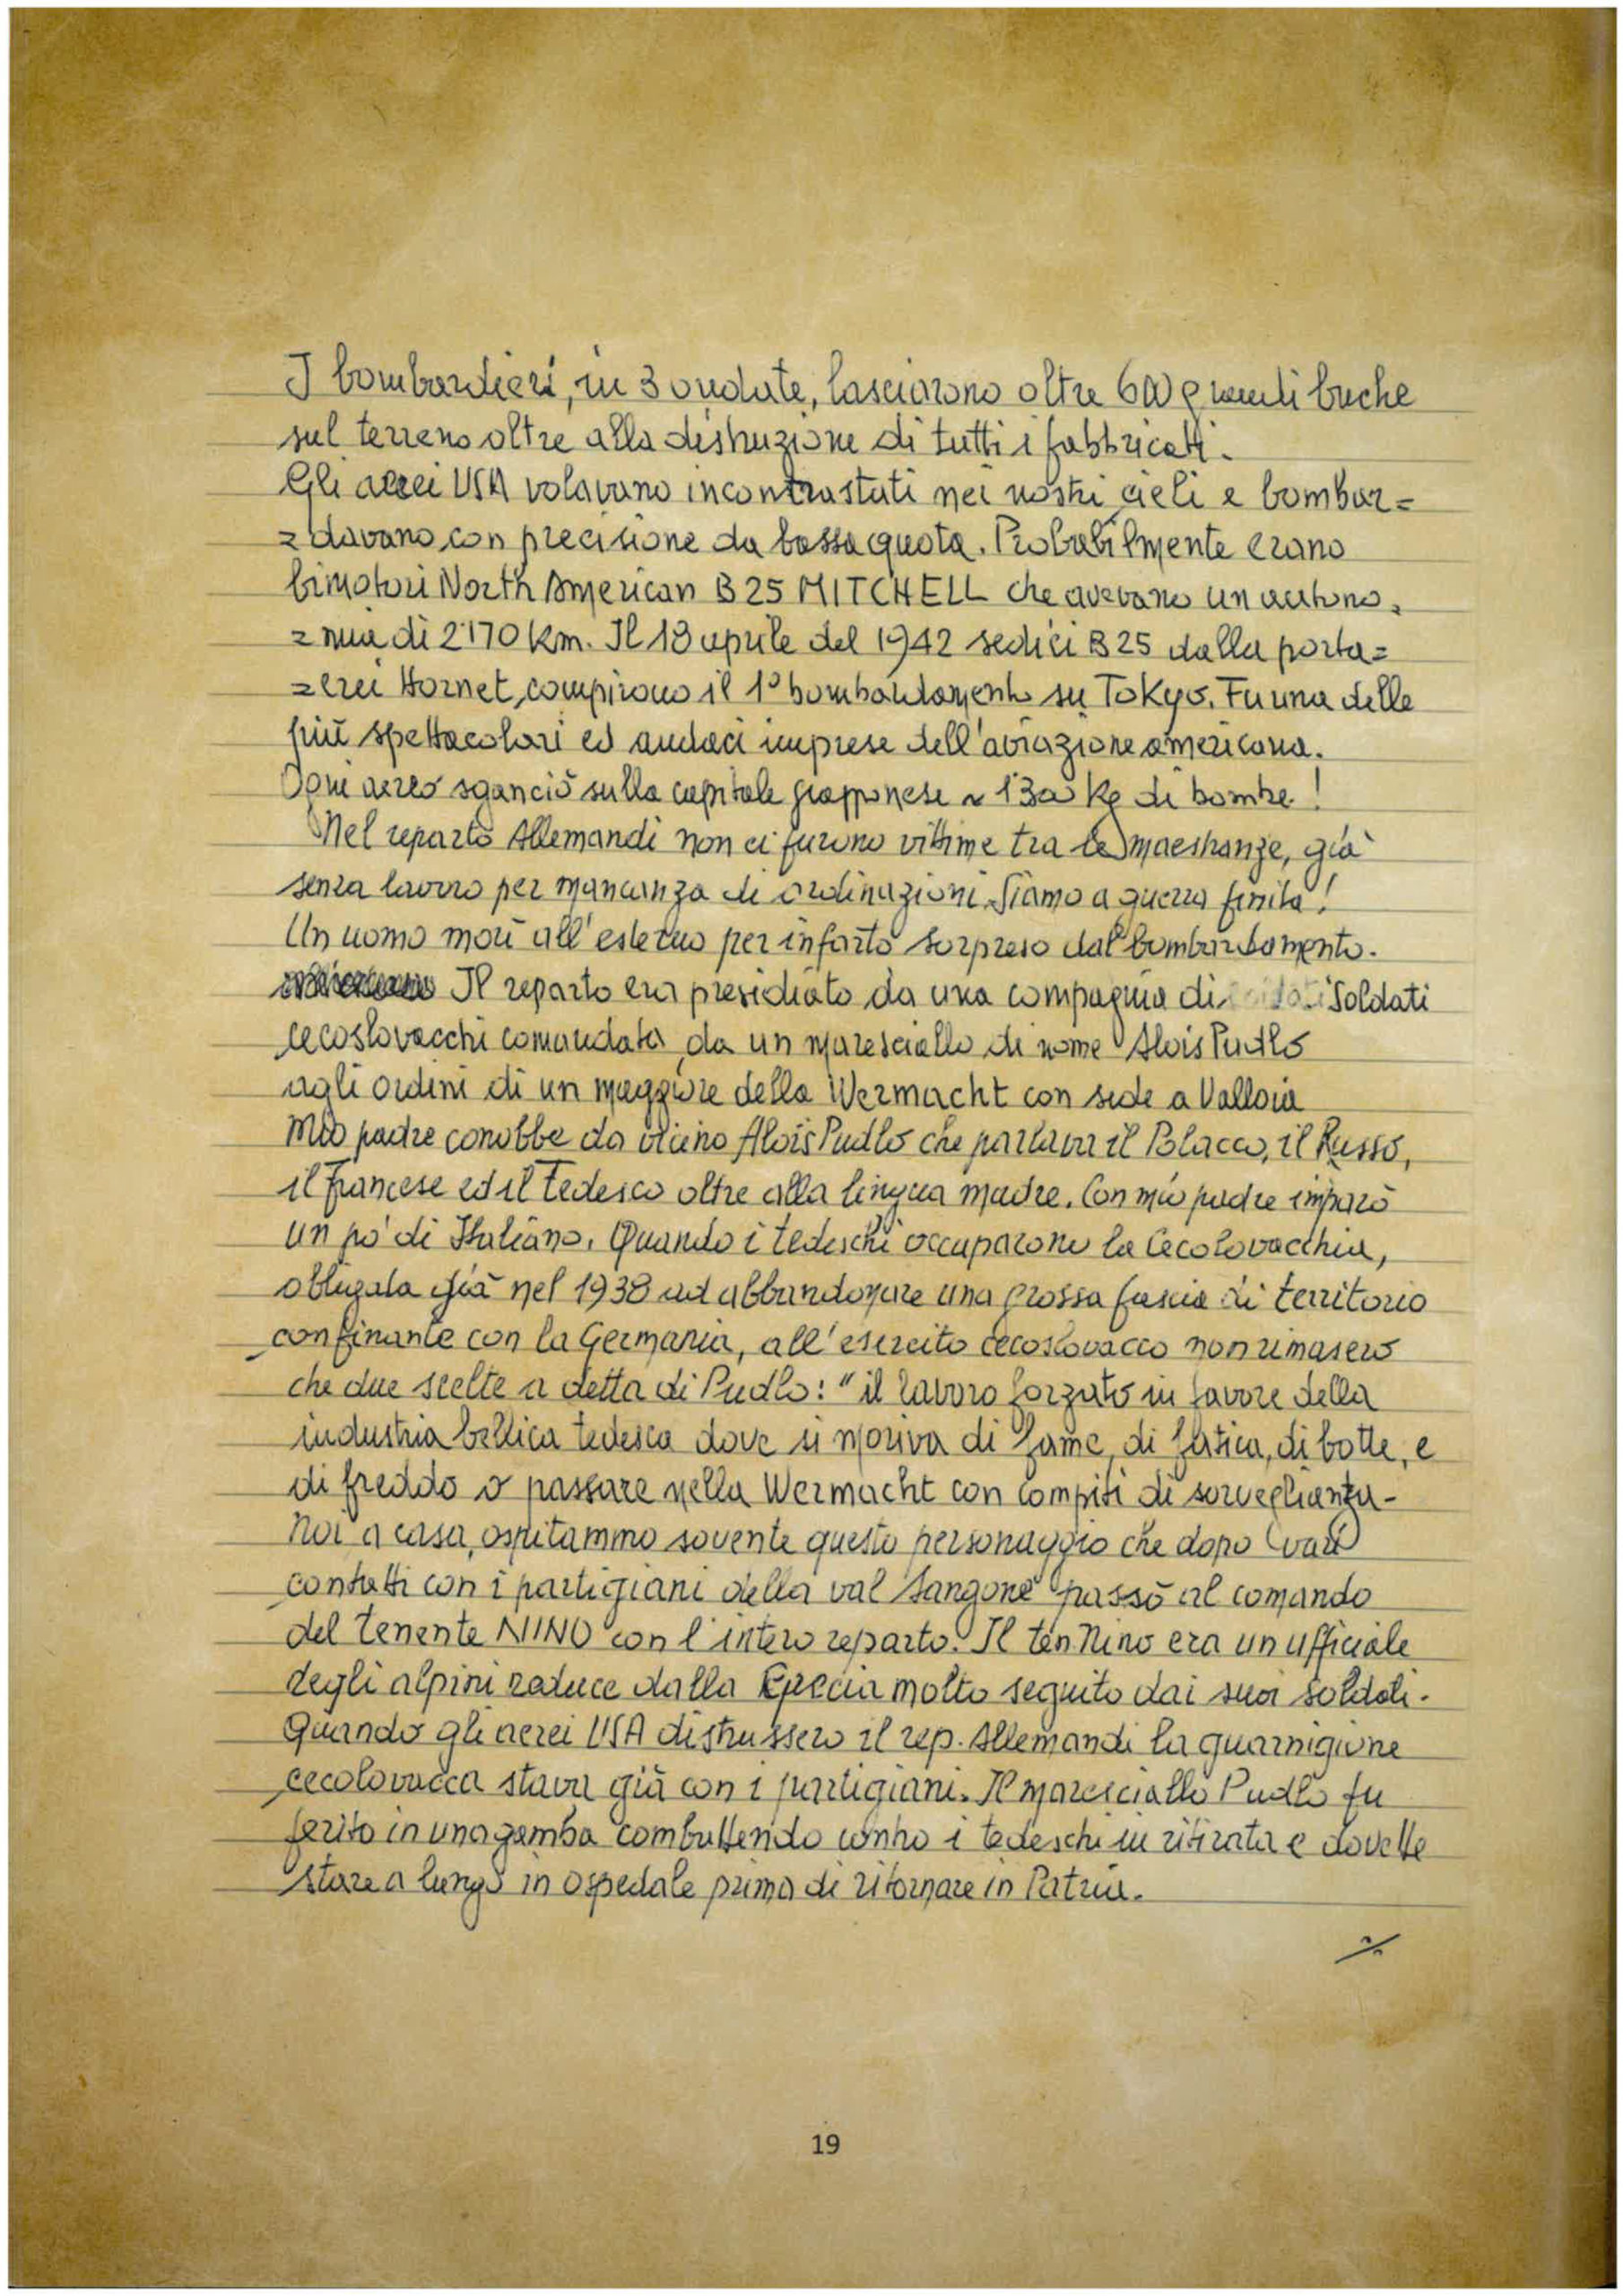 I bombardieri, in 3 ondate, lasciarono oltre 600 grandi buche
sul terreno oltre alla distruzione di tutti i fabbricati.
Gli aerei USA volavano incontrastati nei nostri cieli e bombar=
=davano con precisione da bassa quota. Probabilmente erano
bimotori North American B25 MITCHELL che avevano un autono=
=mia di 2170 km. Il 18 aprile del 1942 sedici B25 dalla porta=
=erei Hornet, compirono il 1° bombardamento su Tokyo. Fu una delle
più spettacolari ed audaci imprese dell'aviazione americana.
Ogni aereo sganciò sulla capitale giapponese ~ 1300 Kg di bombe!
Nel reparto Allemandi non ci furono vittime tra le maestranze, già
senza lavoro per mancanza di ordinazioni. Siamo a guerra finita!
Un uomo morì all'esterno per infarto sorpreso dal bombardamento.
Il reparto era presidiato da una compagnia di soldati
cecoslovacchi comandata da un maresciallo di nome Alois Pudlo
agli ordini di un maggiore della Wermacht con sede a Valloia
Mio padre conobbe da vicino Alois Pudlo che parlava il Polacco, il Russo,
il francese ed il Tedesco oltre alla lingua madre. Con mio padre imparò
un po' di Italiano. Quando i tedeschi occuparono la Cecolovacchia,
obligata già nel 1938 ad abbandonare una grossa fascia di territorio
confinante con la Germania, all'esercito cecoslovacco non rimasero
che due scelte a detta di Pudlo: "il lavoro forzato in favore della
industria bellica tedesca dove si moriva di fame, di fatica, di botte, e
di freddo o passare nella Wermacht con compiti di sorveglianza-
Noi a casa, ospitammo sovente questo personaggio che dopo vari
contatti con i partigiani della val Sangone passò al comando
del tenente NINO con l'intero reparto. Il ten Nino era un ufficiale
degli alpini reduce dalla Grecia molto seguito dai suoi soldati.
Quando gli aerei USA distrussero il rep. Allemandi la guarnigione
cecolovacca stava già con i partigiani. Il maresciallo Pudlo fu
ferito in una gamba combattendo contro i tedeschi in ritirata e dovette
stare a lungo in ospedale prima di ritornare in Patria.
19